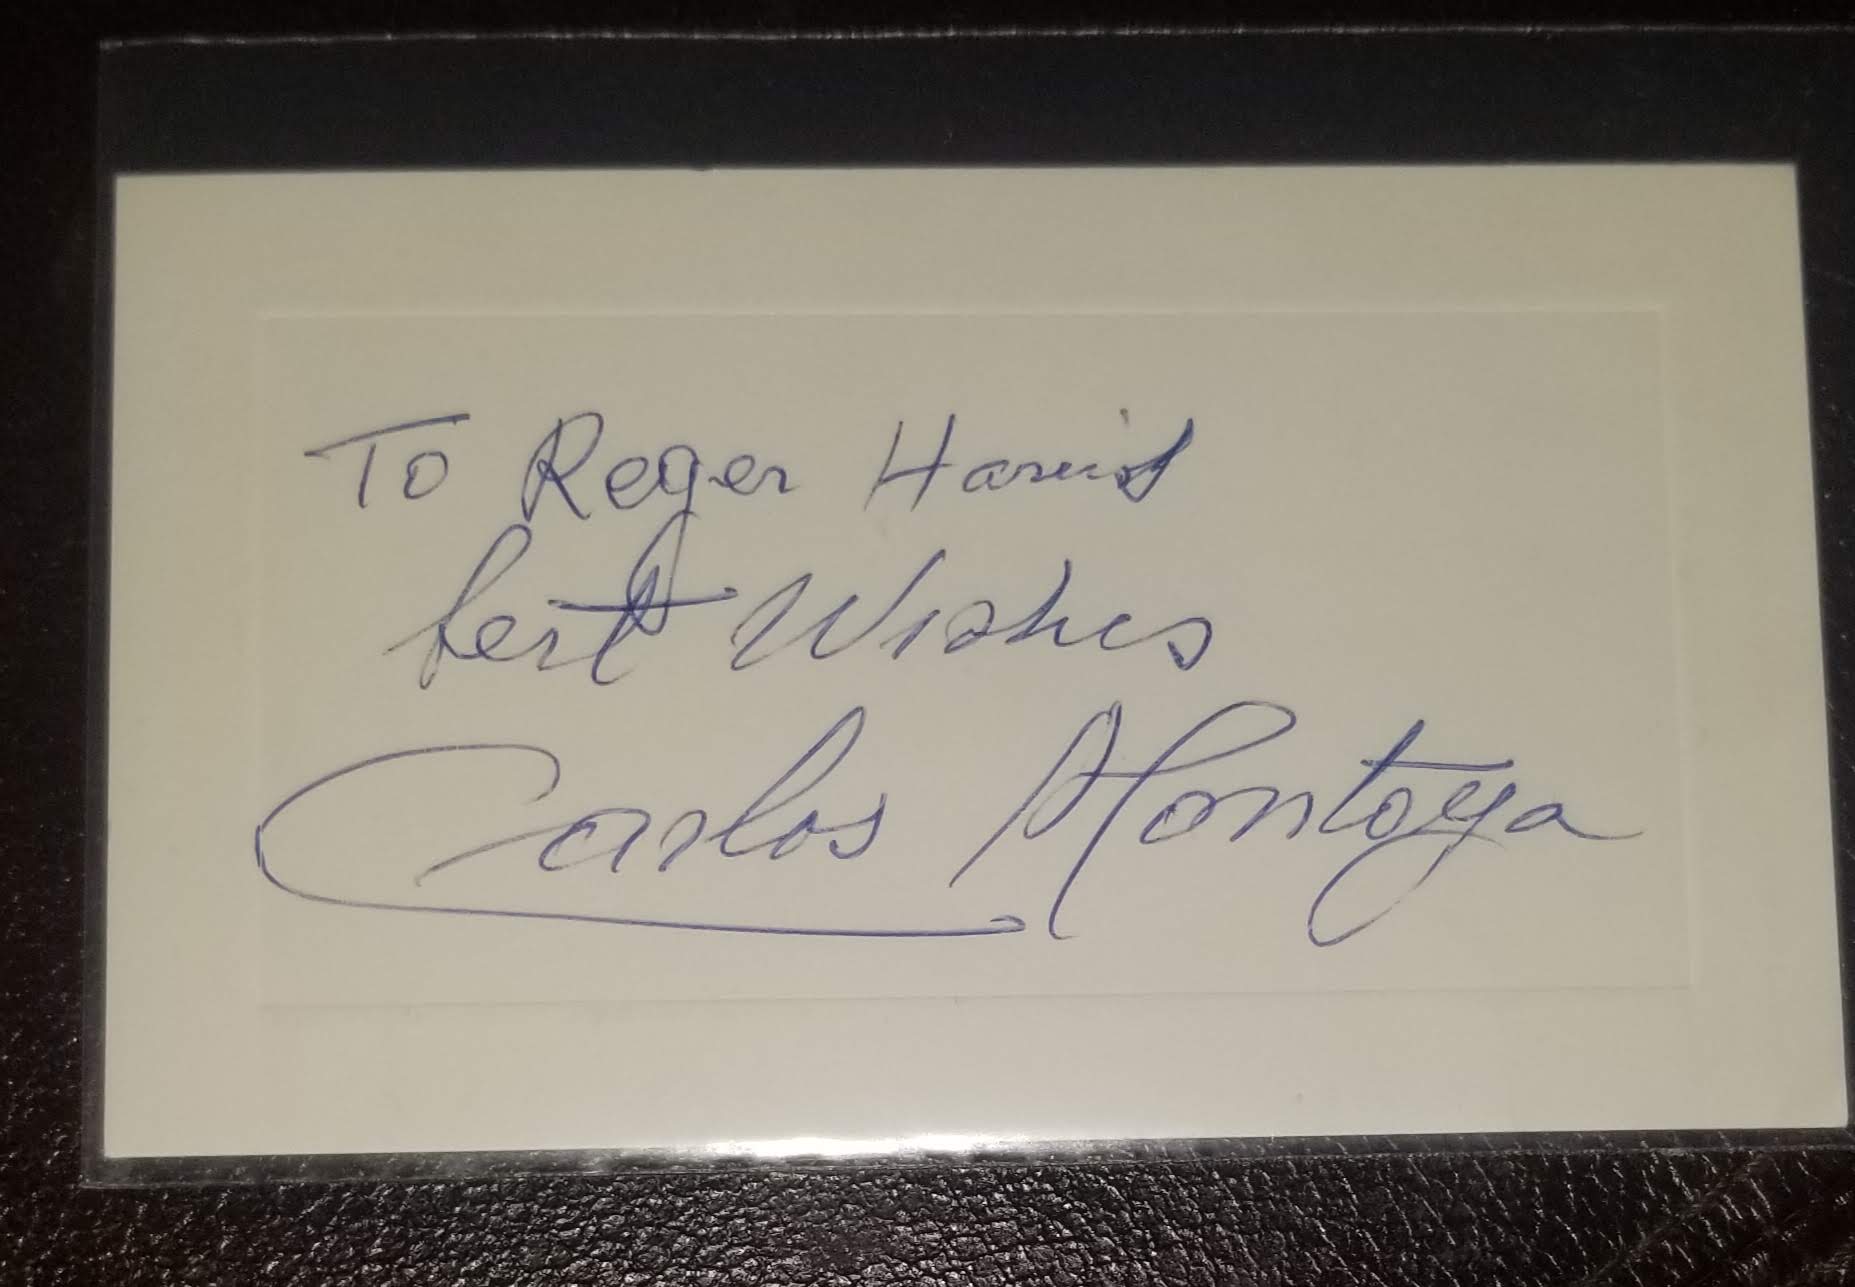 To Roger Harris
best Wishes
Carlos Montoya